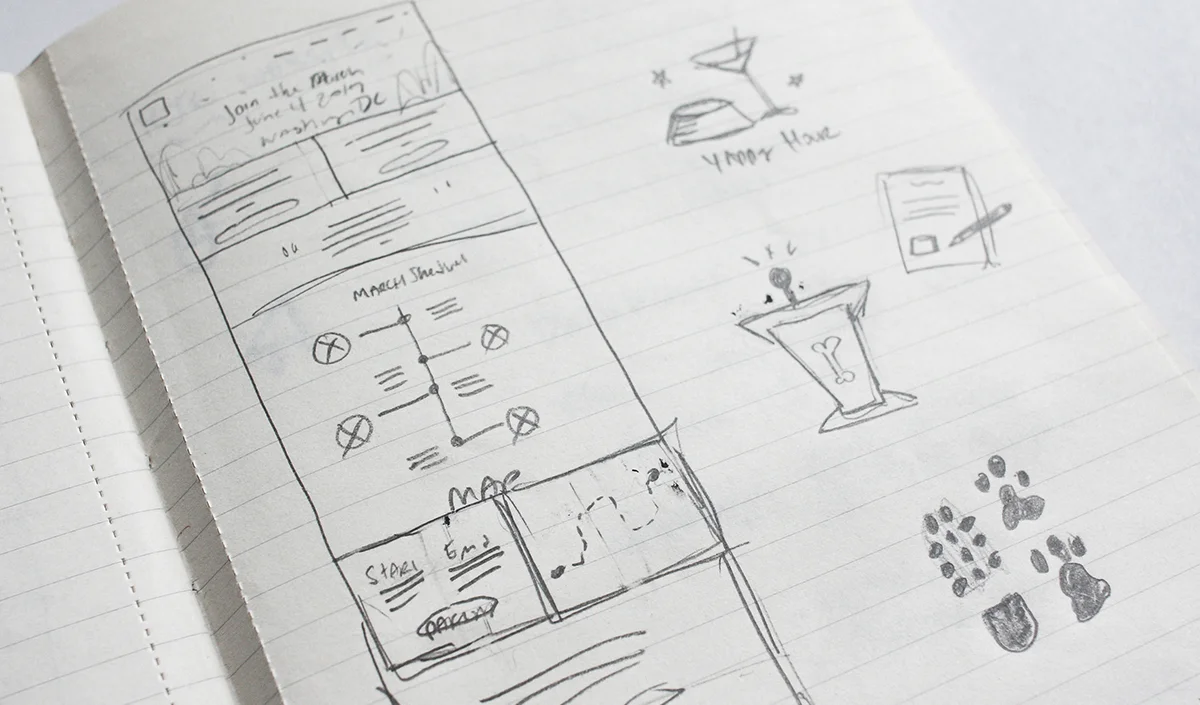 Join the March
June 4 2017
Washington DC
MARCH Schedule
MAP
START
End
Yappy Hour